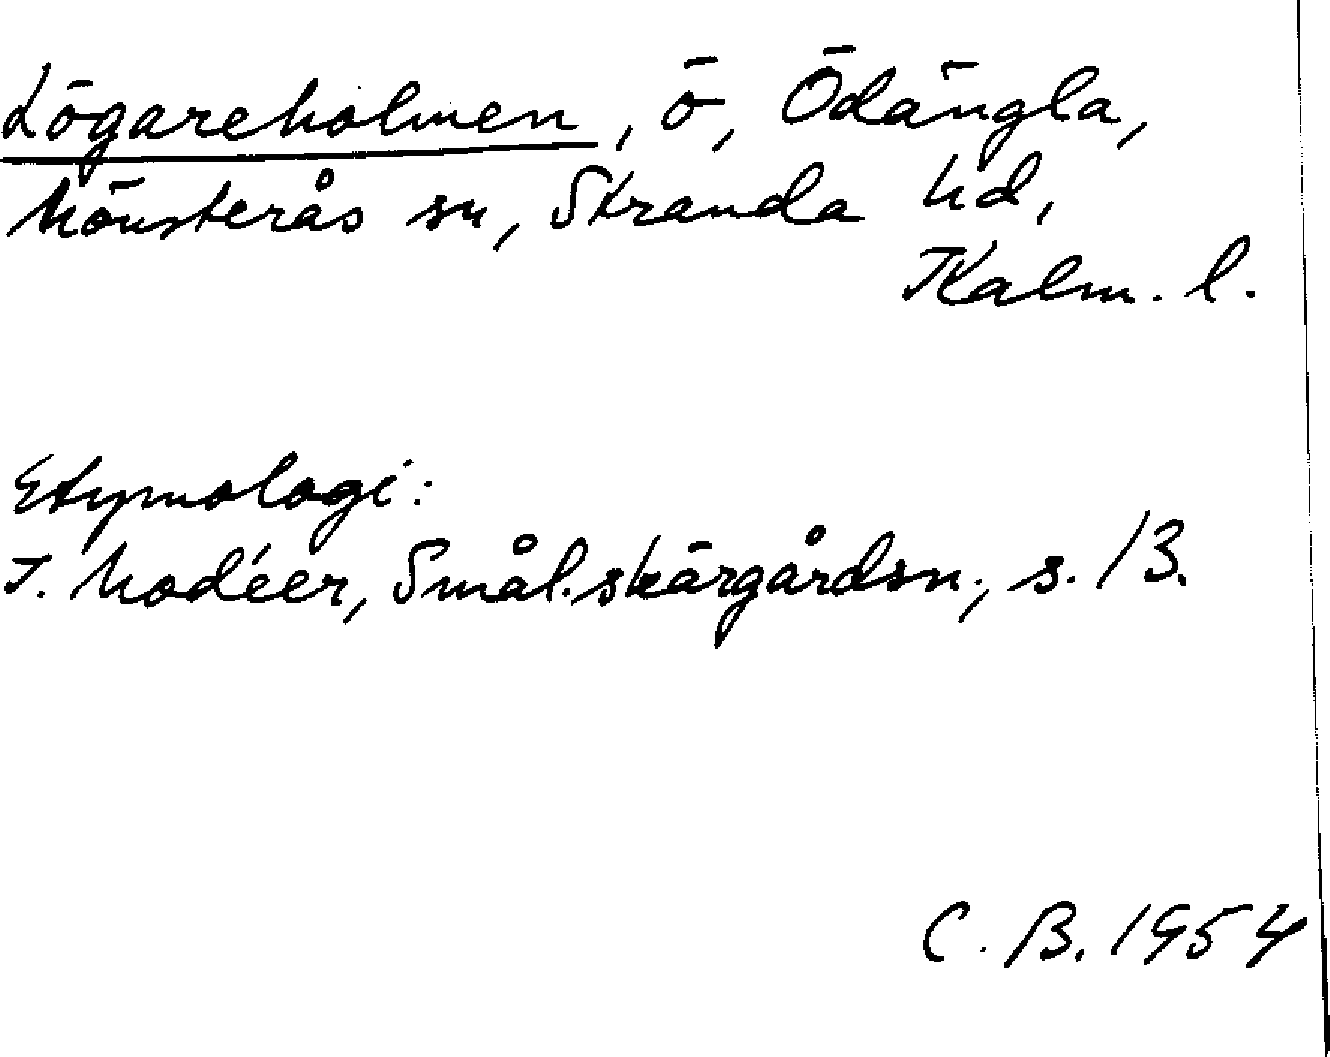 Lögareholmen, ö, Ödängla,
Mönsterås sn, Stranda hd,
Kalm. l.
Etymologi:
I. Modéer, Smål. skärgårdsn., s. 13.
C. B. 1954